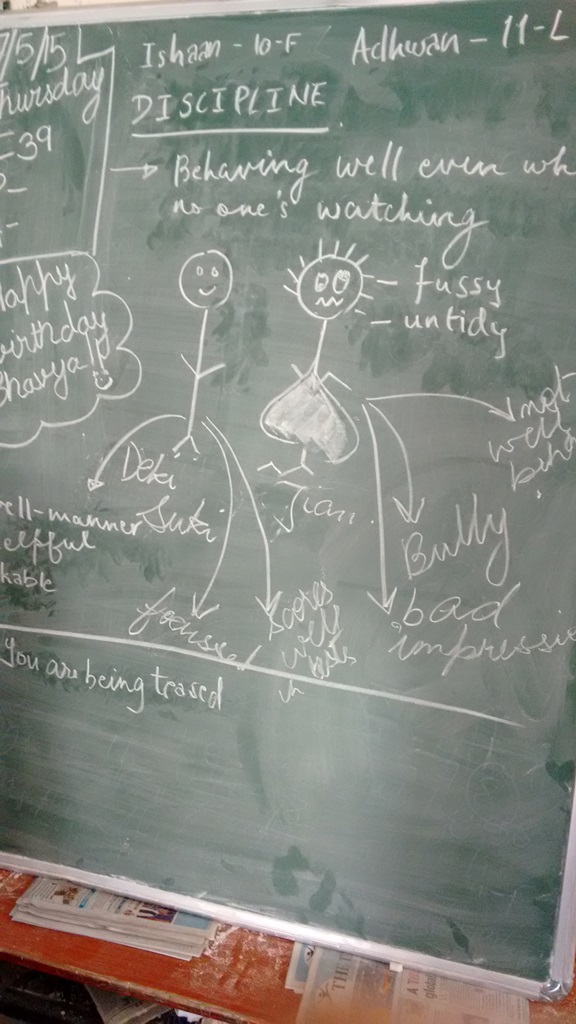 7/5/15
Thursday
39
Ishaan - 10-F
Adhwan - 11-L
DISCIPLINE
→ Behaving well even wh
no one's watching
Happy
birthday
Bhavya!!
- fussy
- untidy
Deki
Suki
Jian
well-manner
elpful
kable
focussed
scores
well
Bully
bad
impressio
not
well
beha
You are being teased
THE TI